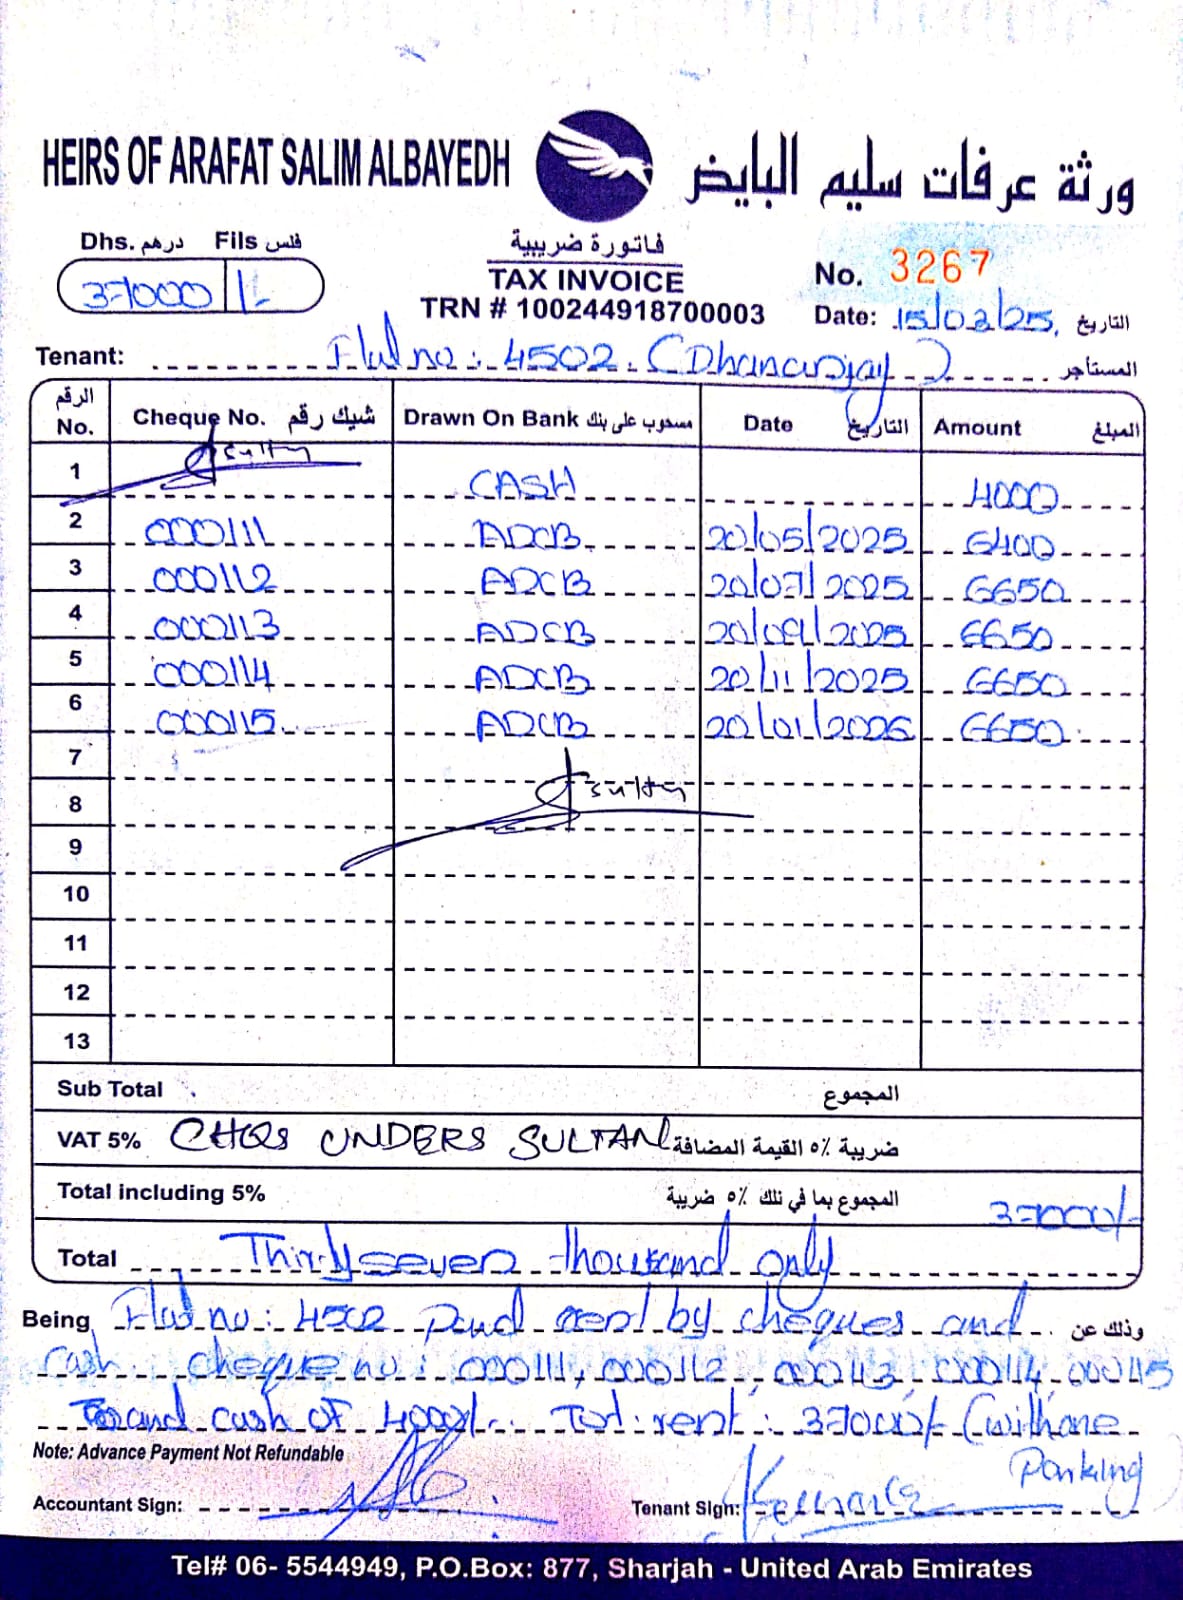 HEIRS OF ARAFAT SALIM ALBAYEDH ورثة عرفات سليم البايض
Dhs. درهم Fils فلس
37000 /-
فاتورة ضريبية
TAX INVOICE
TRN # 100244918700003
No. 3267
Date: 15/02/25, التاريخ
Tenant: Flat no: 4502. (Dhananjay) المستأجر
الرقم No. Cheque No. شيك رقم Drawn On Bank مسحوب على بنك Date التاريخ Amount المبلغ
1 CASH 4000
2 000111 ADCB 20/05/2025 6400
3 000112 ADCB 20/07/2025 6650
4 000113 ADCB 20/09/2025 6650
5 000114 ADCB 20/11/2025 6650
6 000115 ADCB 20/01/2026 6650
7
8
9
10
11
12
13
Sub Total المجموع
VAT 5% CHQS UNDERS SULTAN ضريبة ٥٪ القيمة المضافة
Total including 5% المجموع بما في ذلك ٥٪ ضريبة 37000/-
Total Thirty seven thousand only
Being Flat no: 4502 paid rent by cheques and وذلك عن
cash. cheque no: 000111, 000112, 000113, 000114, 000115
and cash of 4000/-. Tot: rent: 37000/- (with one
Parking
Note: Advance Payment Not Refundable
Accountant Sign: Tenant Sign:
Tel# 06- 5544949, P.O.Box: 877, Sharjah - United Arab Emirates